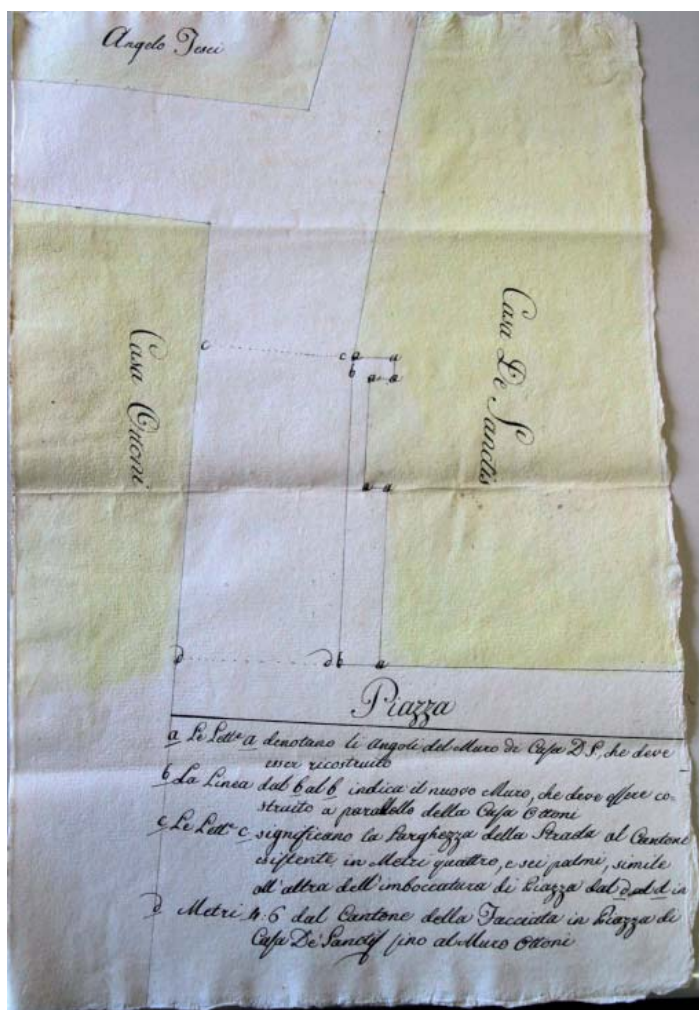 Angelo Jesei
Casa Ottoni
Casa De Sanctis
c c a a
b a a
a a
d d b a
Piazza
a Le Lett.e a denotano li angoli del Muro di Casa D S, che deve
esser ricostruito
b La Linea dal b al b indica il nuovo Muro, che deve essere co-
struito a parallelo della Casa Ottoni
c Le Lett.e c significano la Larghezza della Strada al Cantone
esistente in Metri quattro, e sei palmi, simile
all'altra dell'imboccatura di Piazza dal d al d in
d Metri 4:6 dal Cantone della Facciata in Piazza di
Casa De' Sanctis fino al Muro Ottoni